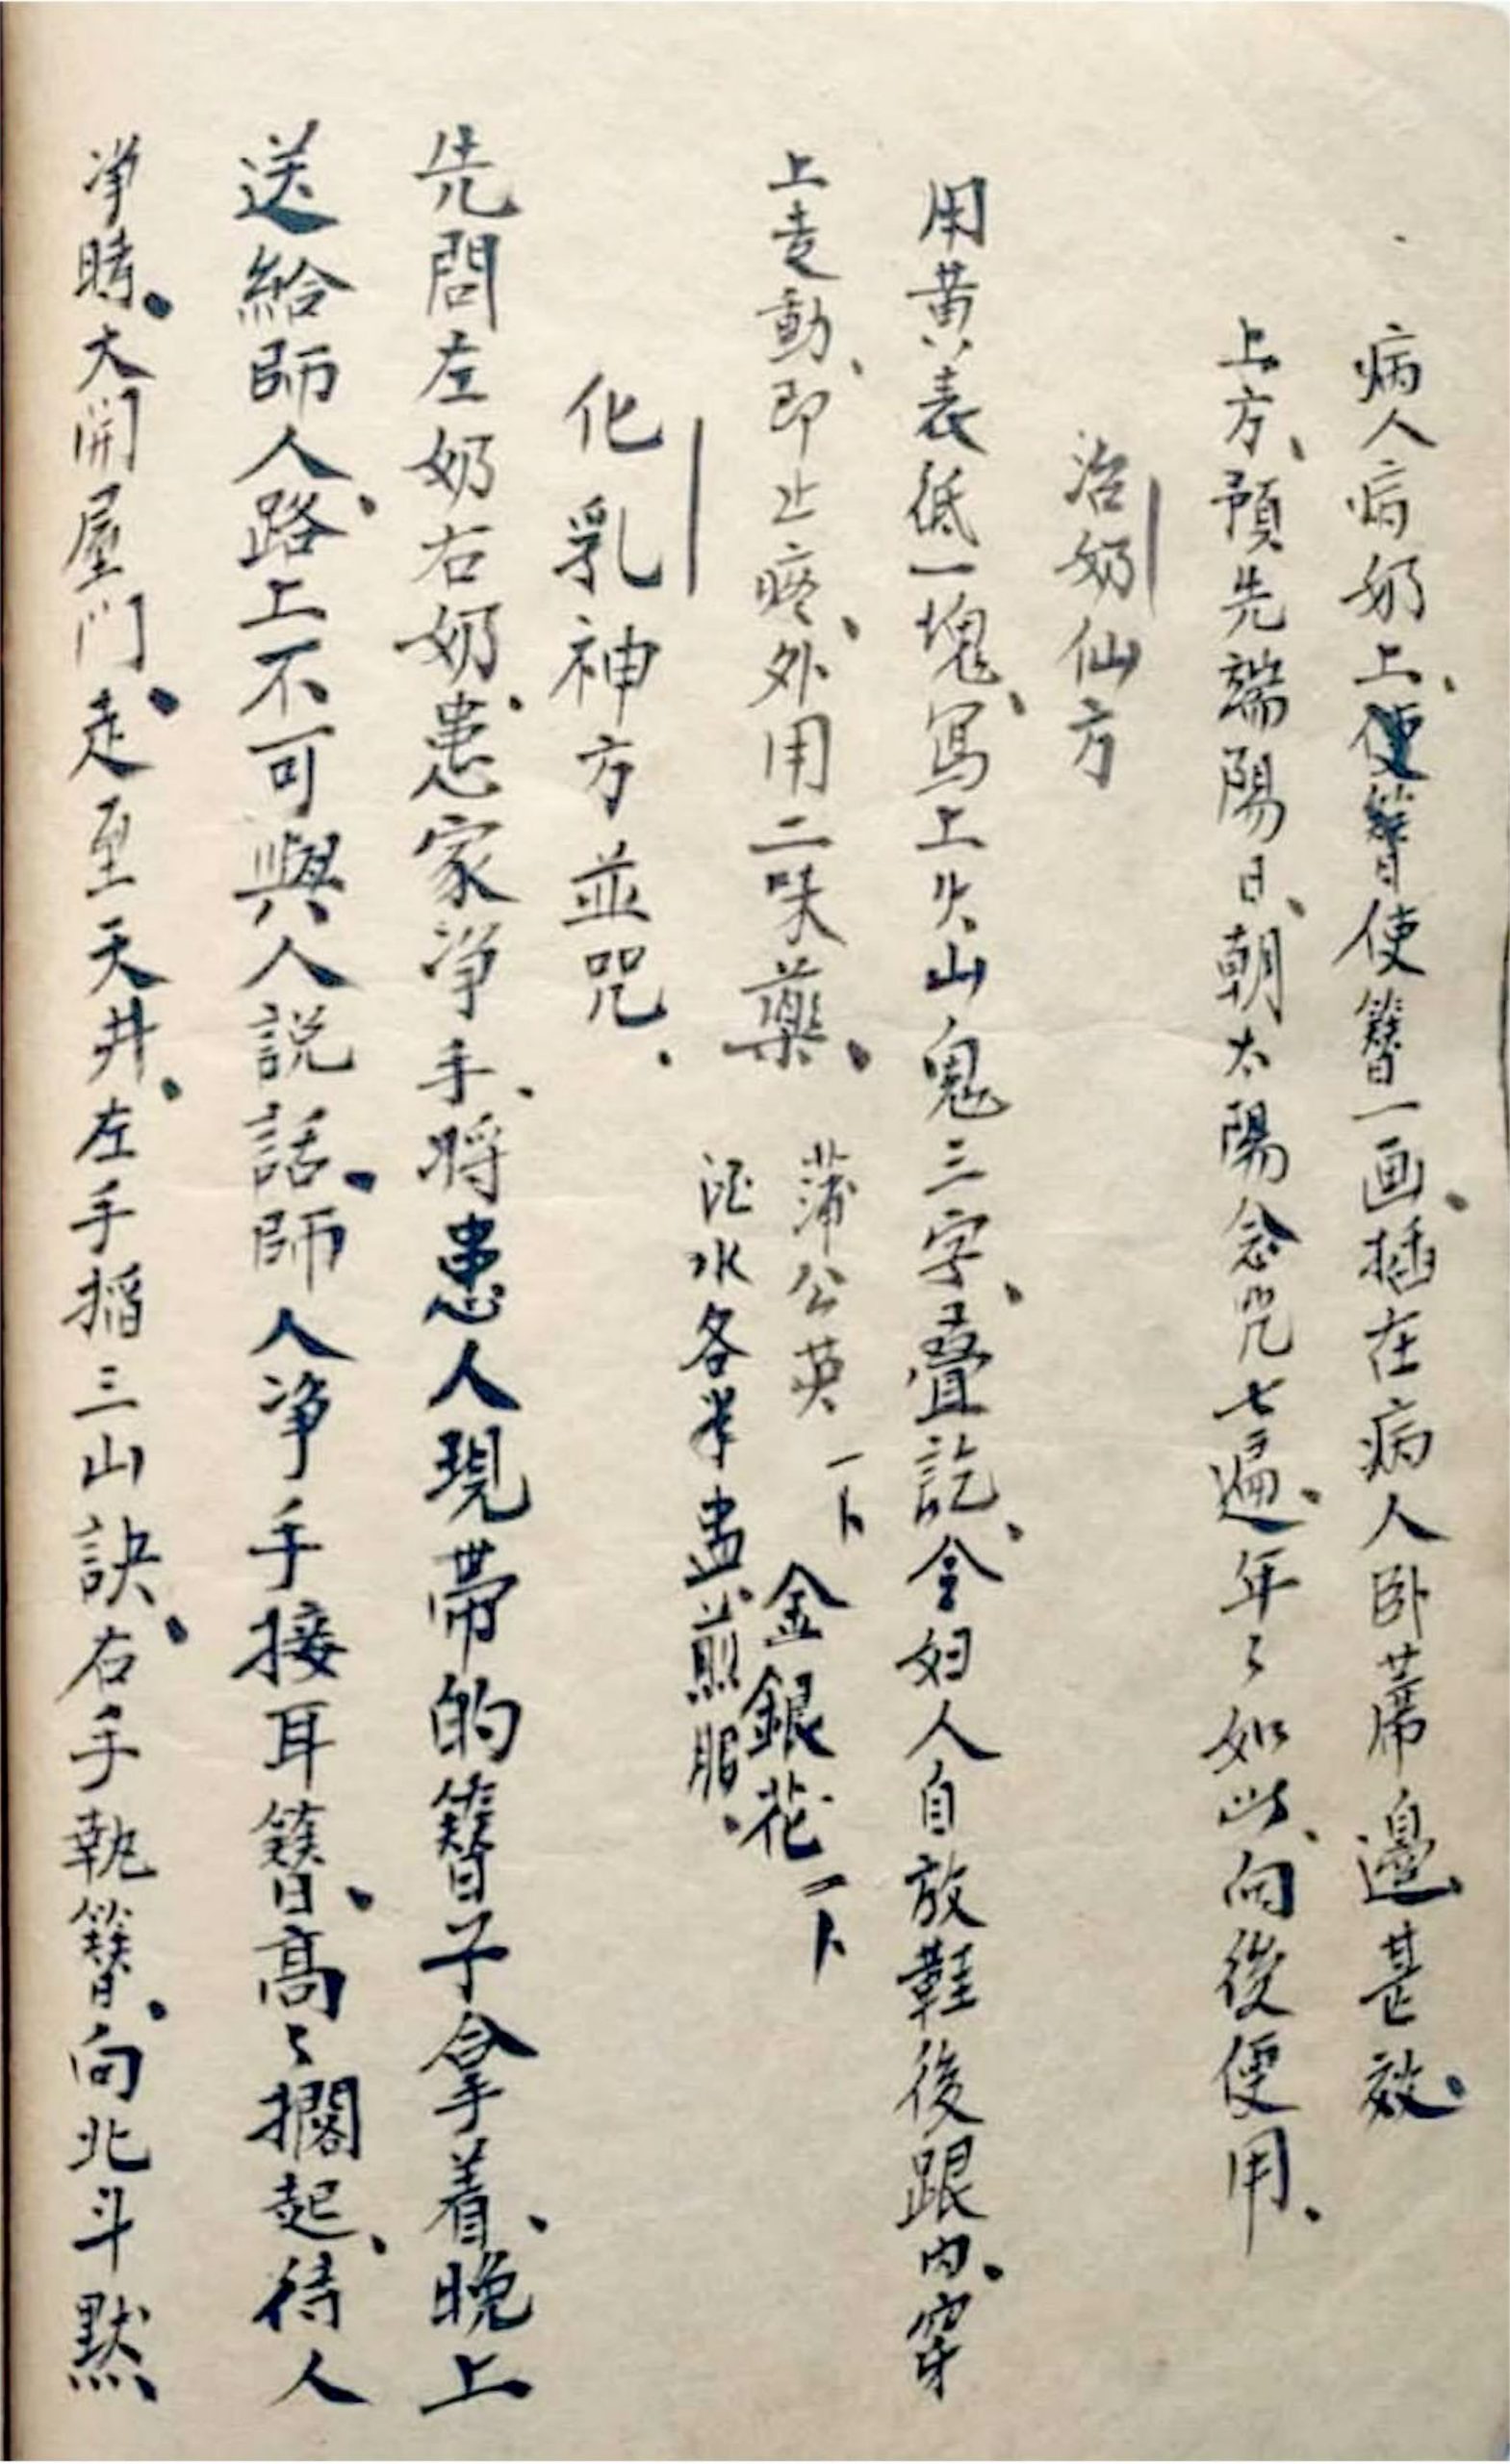 病人病奶上、便簪使簪一画、插在病人卧蓆邊甚效、
上方、預先端陽日、朝太陽念咒七遍、年々如此、向後便用、
治奶仙方
用黄表低一塊、寫上火山鬼三字、疊訖、令妇人自放鞋後跟内、穿
上走動、即止疼、外用二味藥、
蒲公英 一卜 金銀花 一卜
酒水各半盅、煎服、
化乳神方並咒、
先問左奶右奶、患家净手、將患人現帶的簪子拿着、晚上
送給師人、路上不可與人説話、師人净手接耳簪、高々擱起、待人
净時、大開屋门、走至天井、左手掐三山訣、右手執簪、向北斗默